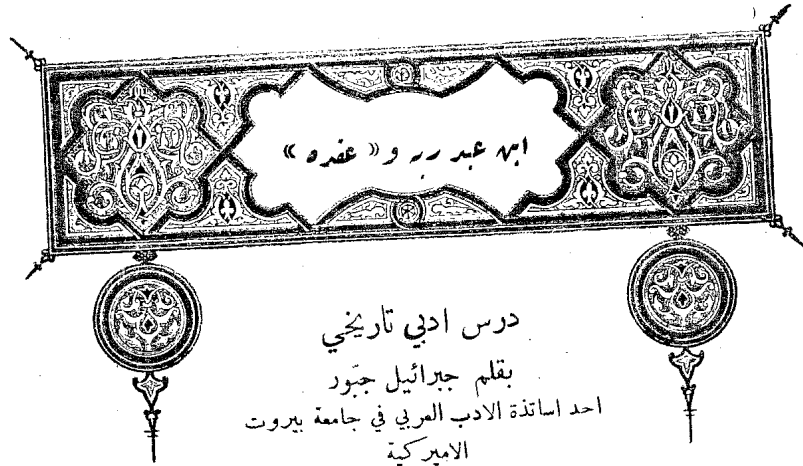 ابن عبد ربه و « عقده »
درس ادبي تاريخي
بقلم جبرائيل جبّور
احد اساتذة الادب العربي في جامعة بيروت
الاميركية